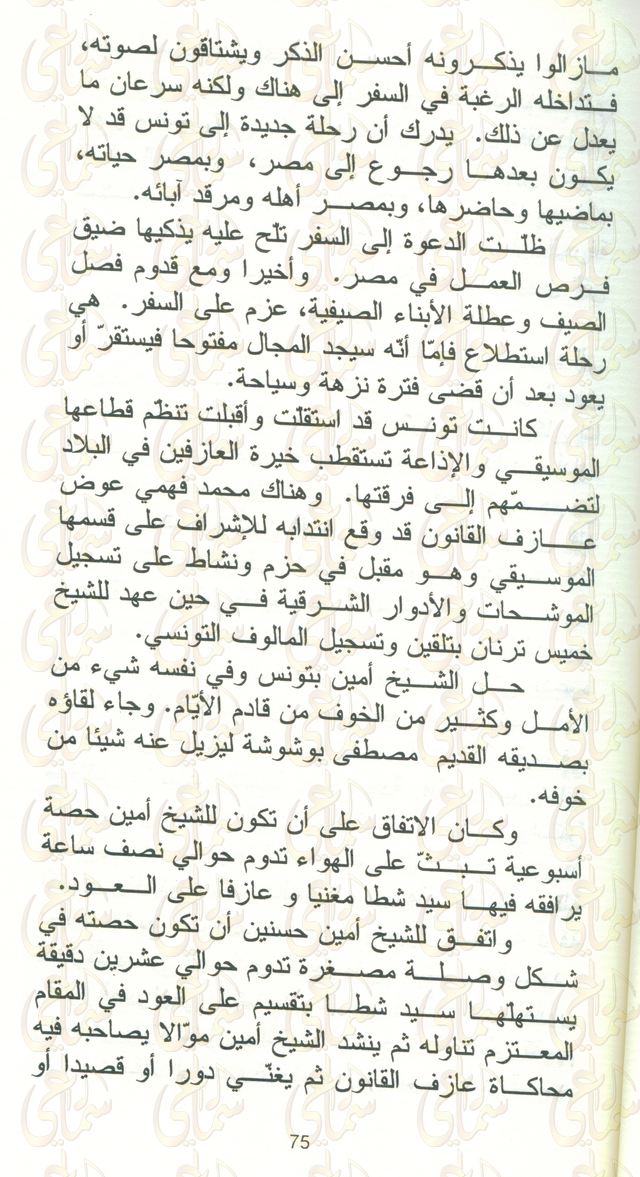 مازالوا يذكرونه أحسن الذكر ويشتاقون لصوته،
فتداخله الرغبة في السفر إلى هناك ولكنه سرعان ما
يعدل عن ذلك. يدرك أن رحلة جديدة إلى تونس قد لا
يكون بعدها رجوع إلى مصر، وبمصر حياته،
بماضيها وحاضرها، وبمصر أهله ومرقد آبائه.
ظلّت الدعوة إلى السفر تلّح عليه يذكيها ضيق
فرص العمل في مصر. وأخيرا ومع قدوم فصل
الصيف وعطلة الأبناء الصيفية، عزم على السفر. هي
رحلة استطلاع فإمّا أنّه سيجد المجال مفتوحا فيستقرّ أو
يعود بعد أن قضى فترة نزهة وسياحة.
كانت تونس قد استقلّت وأقبلت تنظّم قطاعها
الموسيقي والإذاعة تستقطب خيرة العازفين في البلاد
لتضمّهم إلى فرقتها. وهناك محمد فهمي عوض
عازف القانون قد وقع انتدابه للإشراف على قسمها
الموسيقي وهو مقبل في حزم ونشاط على تسجيل
الموشحات والأدوار الشرقية في حين عهد للشيخ
خميس ترنان بتلقين وتسجيل المالوف التونسي.
حل الشيخ أمين بتونس وفي نفسه شيء من
الأمل وكثير من الخوف من قادم الأيّام. وجاء لقاؤه
بصديقه القديم مصطفى بوشوشة ليزيل عنه شيئا من
خوفه.
وكان الاتفاق على أن تكون للشيخ أمين حصة
أسبوعية تبثّ على الهواء تدوم حوالي نصف ساعة
يرافقه فيها سيد شطا مغنيا و عازفا على العود.
واتفق للشيخ أمين حسنين أن تكون حصته في
شكل وصلة مصغرة تدوم حوالي عشرين دقيقة
يستهلّها سيد شطا بتقسيم على العود في المقام
المعتزم تناوله ثم ينشد الشيخ أمين موّالا يصاحبه فيه
محاكاة عازف القانون ثم يغنّي دورا أو قصيدا أو
75